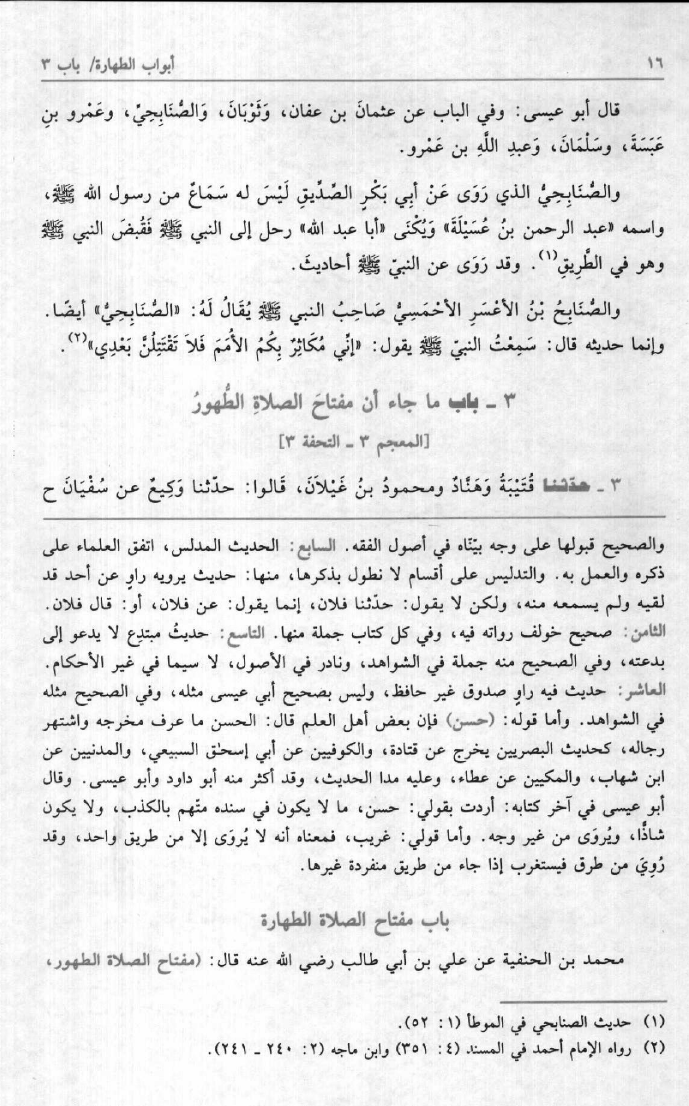 ١٦ أبواب الطهارة/ باب ٣
قال أبو عيسى: وفي الباب عن عثمانَ بن عفان، وَثَوْبَانَ، وَالصُّنَابِحِيِّ، وعَمْرو بنِ
عَبَسَةَ، وسَلْمَانَ، وَعبدِ اللَّهِ بن عَمْرو.
والصُّنَابِحِيُّ الذي رَوَى عَنْ أبِي بَكْرٍ الصِّدِّيقِ لَيْسَ له سَمَاعٌ من رسول الله ﷺ،
واسمه «عبد الرحمن بنُ عُسَيْلَةَ» وَيُكْنَى «أبا عبد الله» رحل إلى النبي ﷺ فَقُبضَ النبي ﷺ
وهو في الطَّرِيقِ(١). وقد رَوَى عن النبيّ ﷺ أحاديثَ.
والصُّنَابِحُ بْنُ الأعْسَرِ الأحْمَسِيُّ صَاحِبُ النبي ﷺ يُقَالُ لَهُ: «الصُّنَابِحِيُّ» أيضًا.
وإنما حديثه قال: سَمِعْتُ النبيّ ﷺ يقول: «إنِّي مُكَاثِرٌ بِكُمُ الأُمَمَ فَلاَ تَقْتَتِلُنَّ بَعْدِي»(٢).
٣ ـ باب ما جاء أن مفتاحَ الصلاةِ الطُّهورُ
[المعجم ٣ ـ التحفة ٣]
٣ ـ حدّثنا قُتَيْبَةُ وَهَنَّادٌ ومحمودُ بنُ غَيْلاَنَ، قَالوا: حدّثنا وَكِيعٌ عن سُفْيَانَ ح
والصحيح قبولها على وجه بيّنّاه في أصول الفقه. السابع: الحديث المدلس، اتفق العلماء على
ذكره والعمل به. والتدليس على أقسام لا نطول بذكرها، منها: حديث يرويه راوٍ عن أحد قد
لقيه ولم يسمعه منه، ولكن لا يقول: حدّثنا فلان، إنما يقول: عن فلان، أو: قال فلان.
الثامن: صحيح خولف رواته فيه، وفي كل كتاب جملة منها. التاسع: حديثُ مبتدِع لا يدعو إلى
بدعته، وفي الصحيح منه جملة في الشواهد، ونادر في الأصول، لا سيما في غير الأحكام.
العاشر: حديث فيه راوٍ صدوق غير حافظ، وليس بصحيح أبي عيسى مثله، وفي الصحيح مثله
في الشواهد. وأما قوله: (حسن) فإن بعض أهل العلم قال: الحسن ما عرف مخرجه واشتهر
رجاله، كحديث البصريين يخرج عن قتادة، والكوفيين عن أبي إسحٰق السبيعي، والمدنيين عن
ابن شهاب، والمكيين عن عطاء، وعليه مدا الحديث، وقد أكثر منه أبو داود وأبو عيسى. وقال
أبو عيسى في آخر كتابه: أردت بقولي: حسن، ما لا يكون في سنده متّهم بالكذب، ولا يكون
شاذًّا، ويُروَى من غير وجه. وأما قولي: غريب، فمعناه أنه لا يُروَى إلا من طريق واحد، وقد
رُوِيَ من طرق فيستغرب إذا جاء من طريق منفردة غيرها.
باب مفتاح الصلاة الطهارة
محمد بن الحنفية عن علي بن أبي طالب رضي الله عنه قال: (مفتاح الصلاة الطهور،
(١) حديث الصنابحي في الموطأ (١: ٥٢).
(٢) رواه الإمام أحمد في المسند (٤: ٣٥١) وابن ماجه (٢: ٢٤٠ ـ ٢٤١).